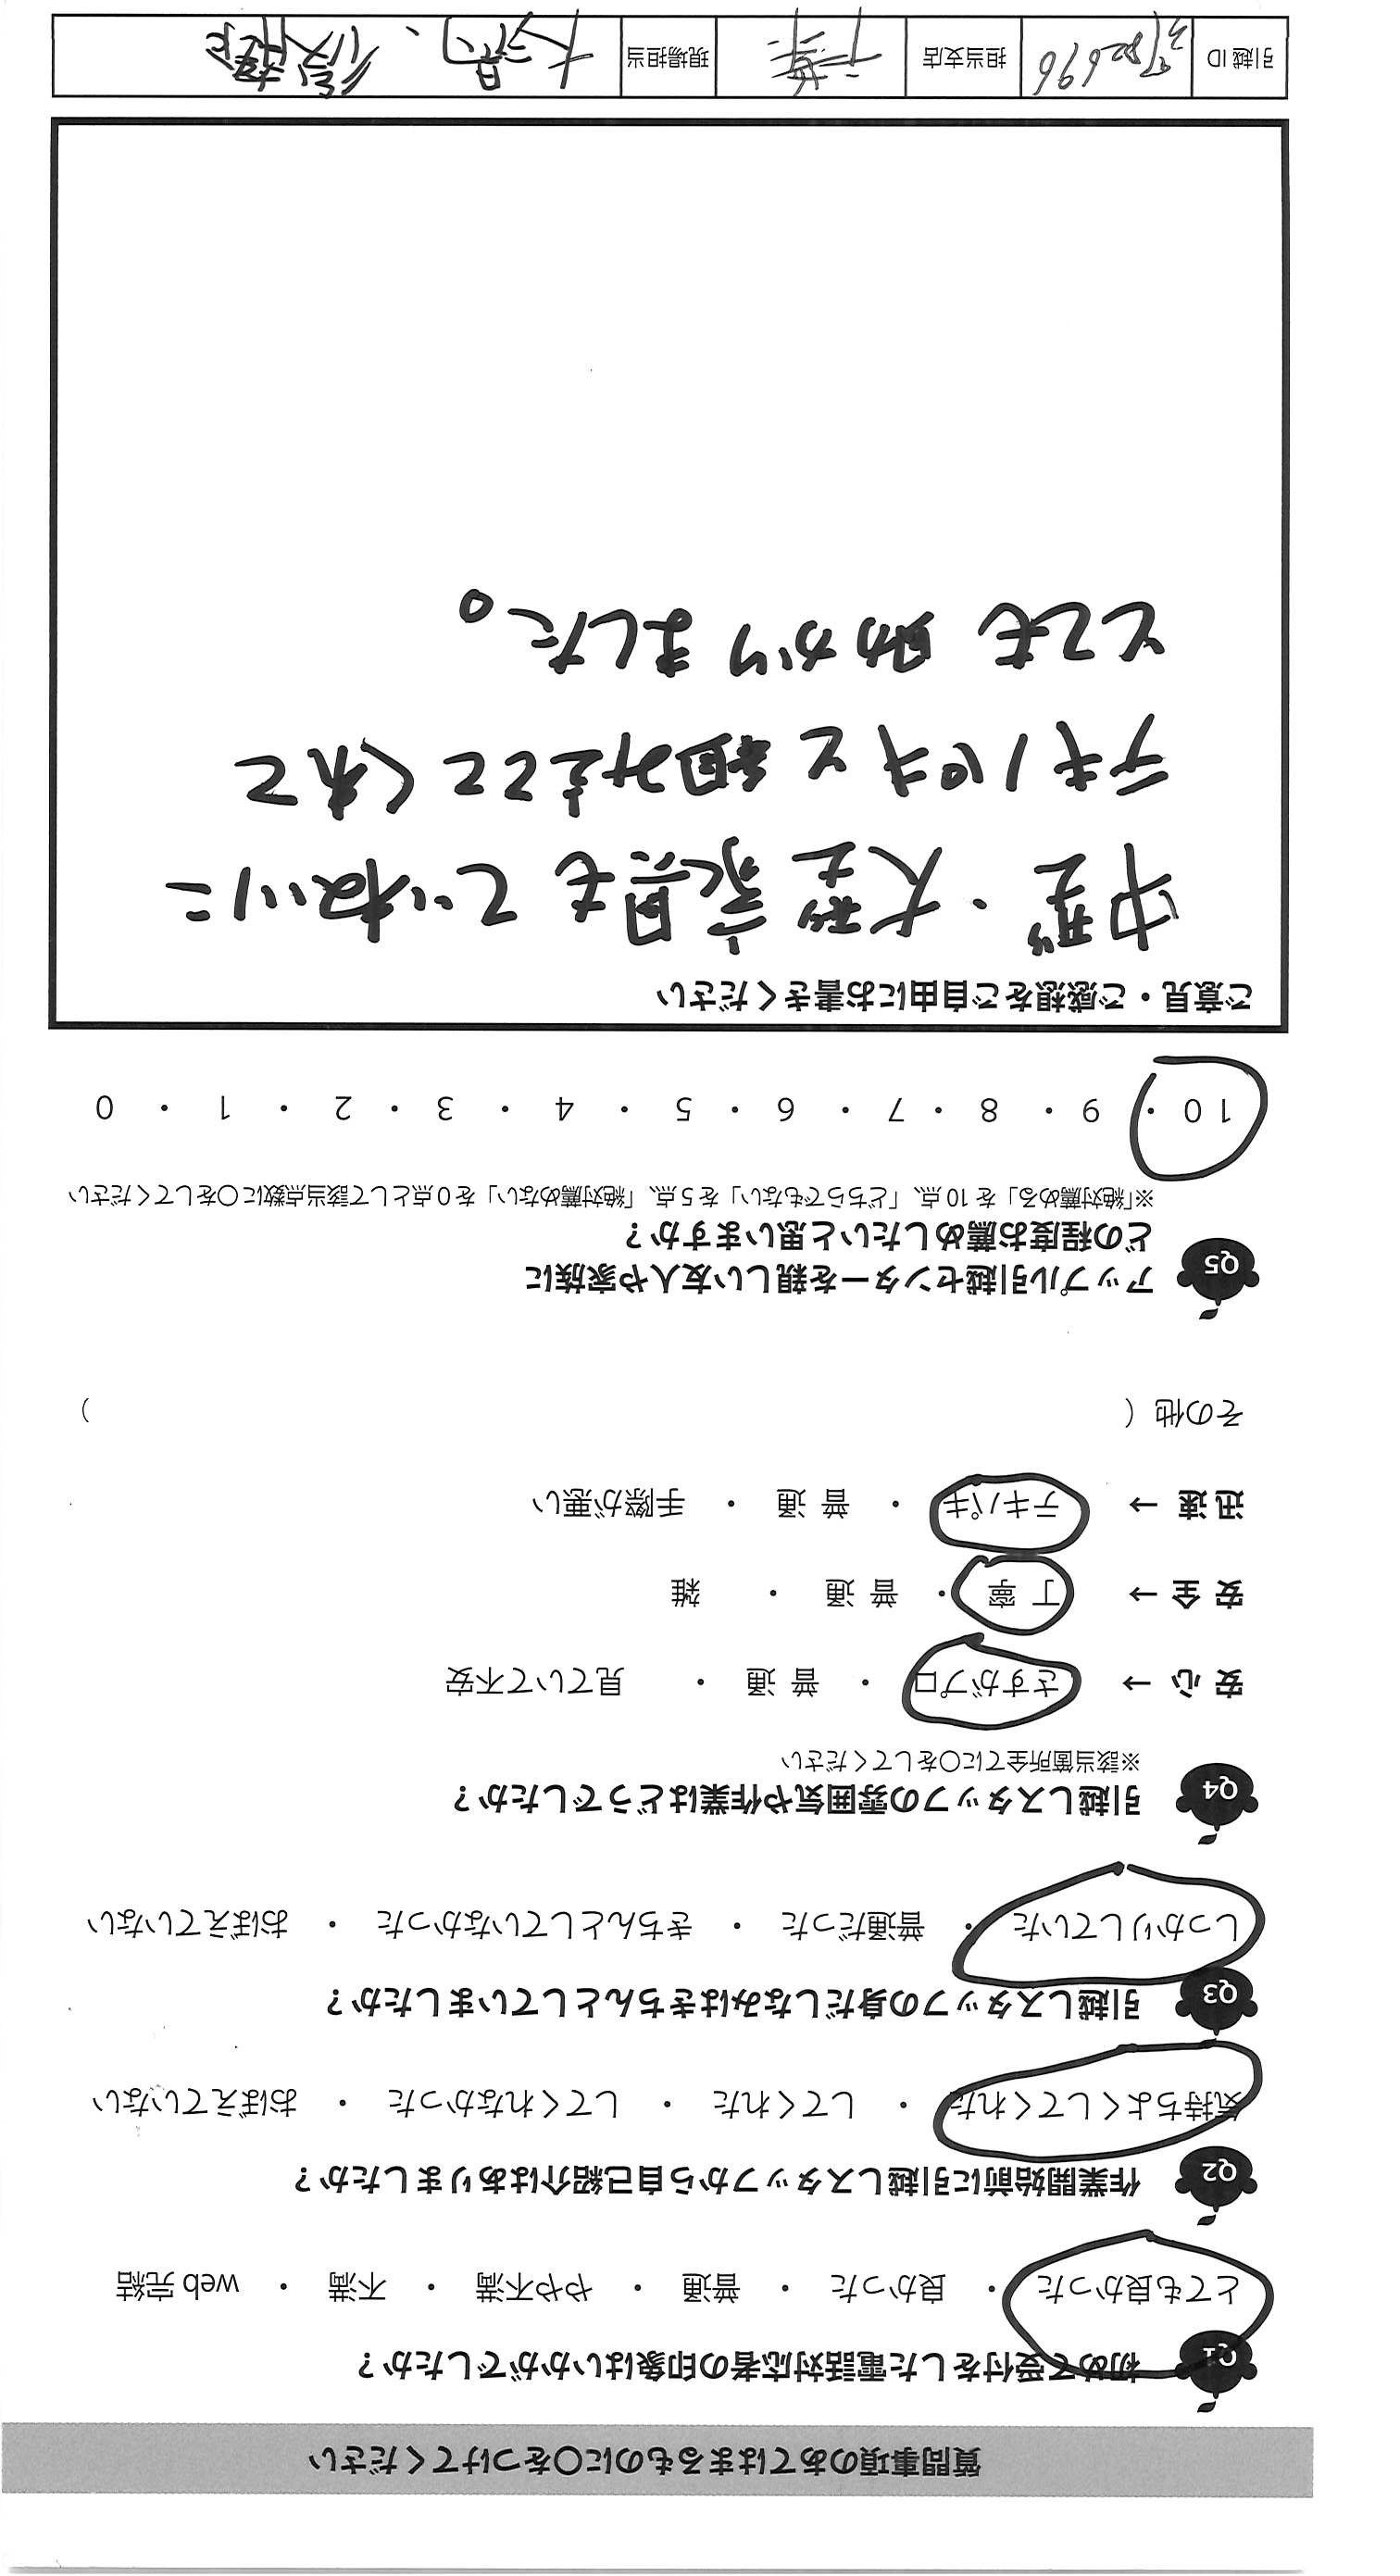 質問事項のあてはまるものに〇をつけてください
Q1 初めて受付をした電話対応者の印象はいかがでしたか？
とても良かった ・ 良かった ・ 普通 ・ やや不満 ・ 不満 ・ web完結
Q2 作業開始前に引越しスタッフから自己紹介はありましたか？
気持ちよくしてくれた ・ してくれた ・ してくれなかった ・ おぼえていない
Q3 引越しスタッフの身だしなみはきちんとしていましたか？
しっかりしていた ・ 普通だった ・ きちんとしていなかった ・ おぼえていない
Q4 引越しスタッフの雰囲気や作業はどうでしたか？
※該当箇所全てに〇をしてください
安心 → さすがプロ ・ 普通 ・ 見ていて不安
安全 → 丁寧 ・ 普通 ・ 雑
迅速 → テキパキ ・ 普通 ・ 手際が悪い
その他（ ）
Q5 アップル引越センターを親しい友人や家族に
どの程度お薦めしたいと思いますか？
※「絶対薦める」を10点、「どちらでもない」を5点、「絶対薦めない」を0点として該当点数に〇をしてください
10 ・ 9 ・ 8 ・ 7 ・ 6 ・ 5 ・ 4 ・ 3 ・ 2 ・ 1 ・ 0
ご意見・ご感想をご自由にお書きください
中型・大型家具もていねいに
テキパキと組み立ててくれて
とても助かりました。
引越ID 担当支店 千葉 現場担当